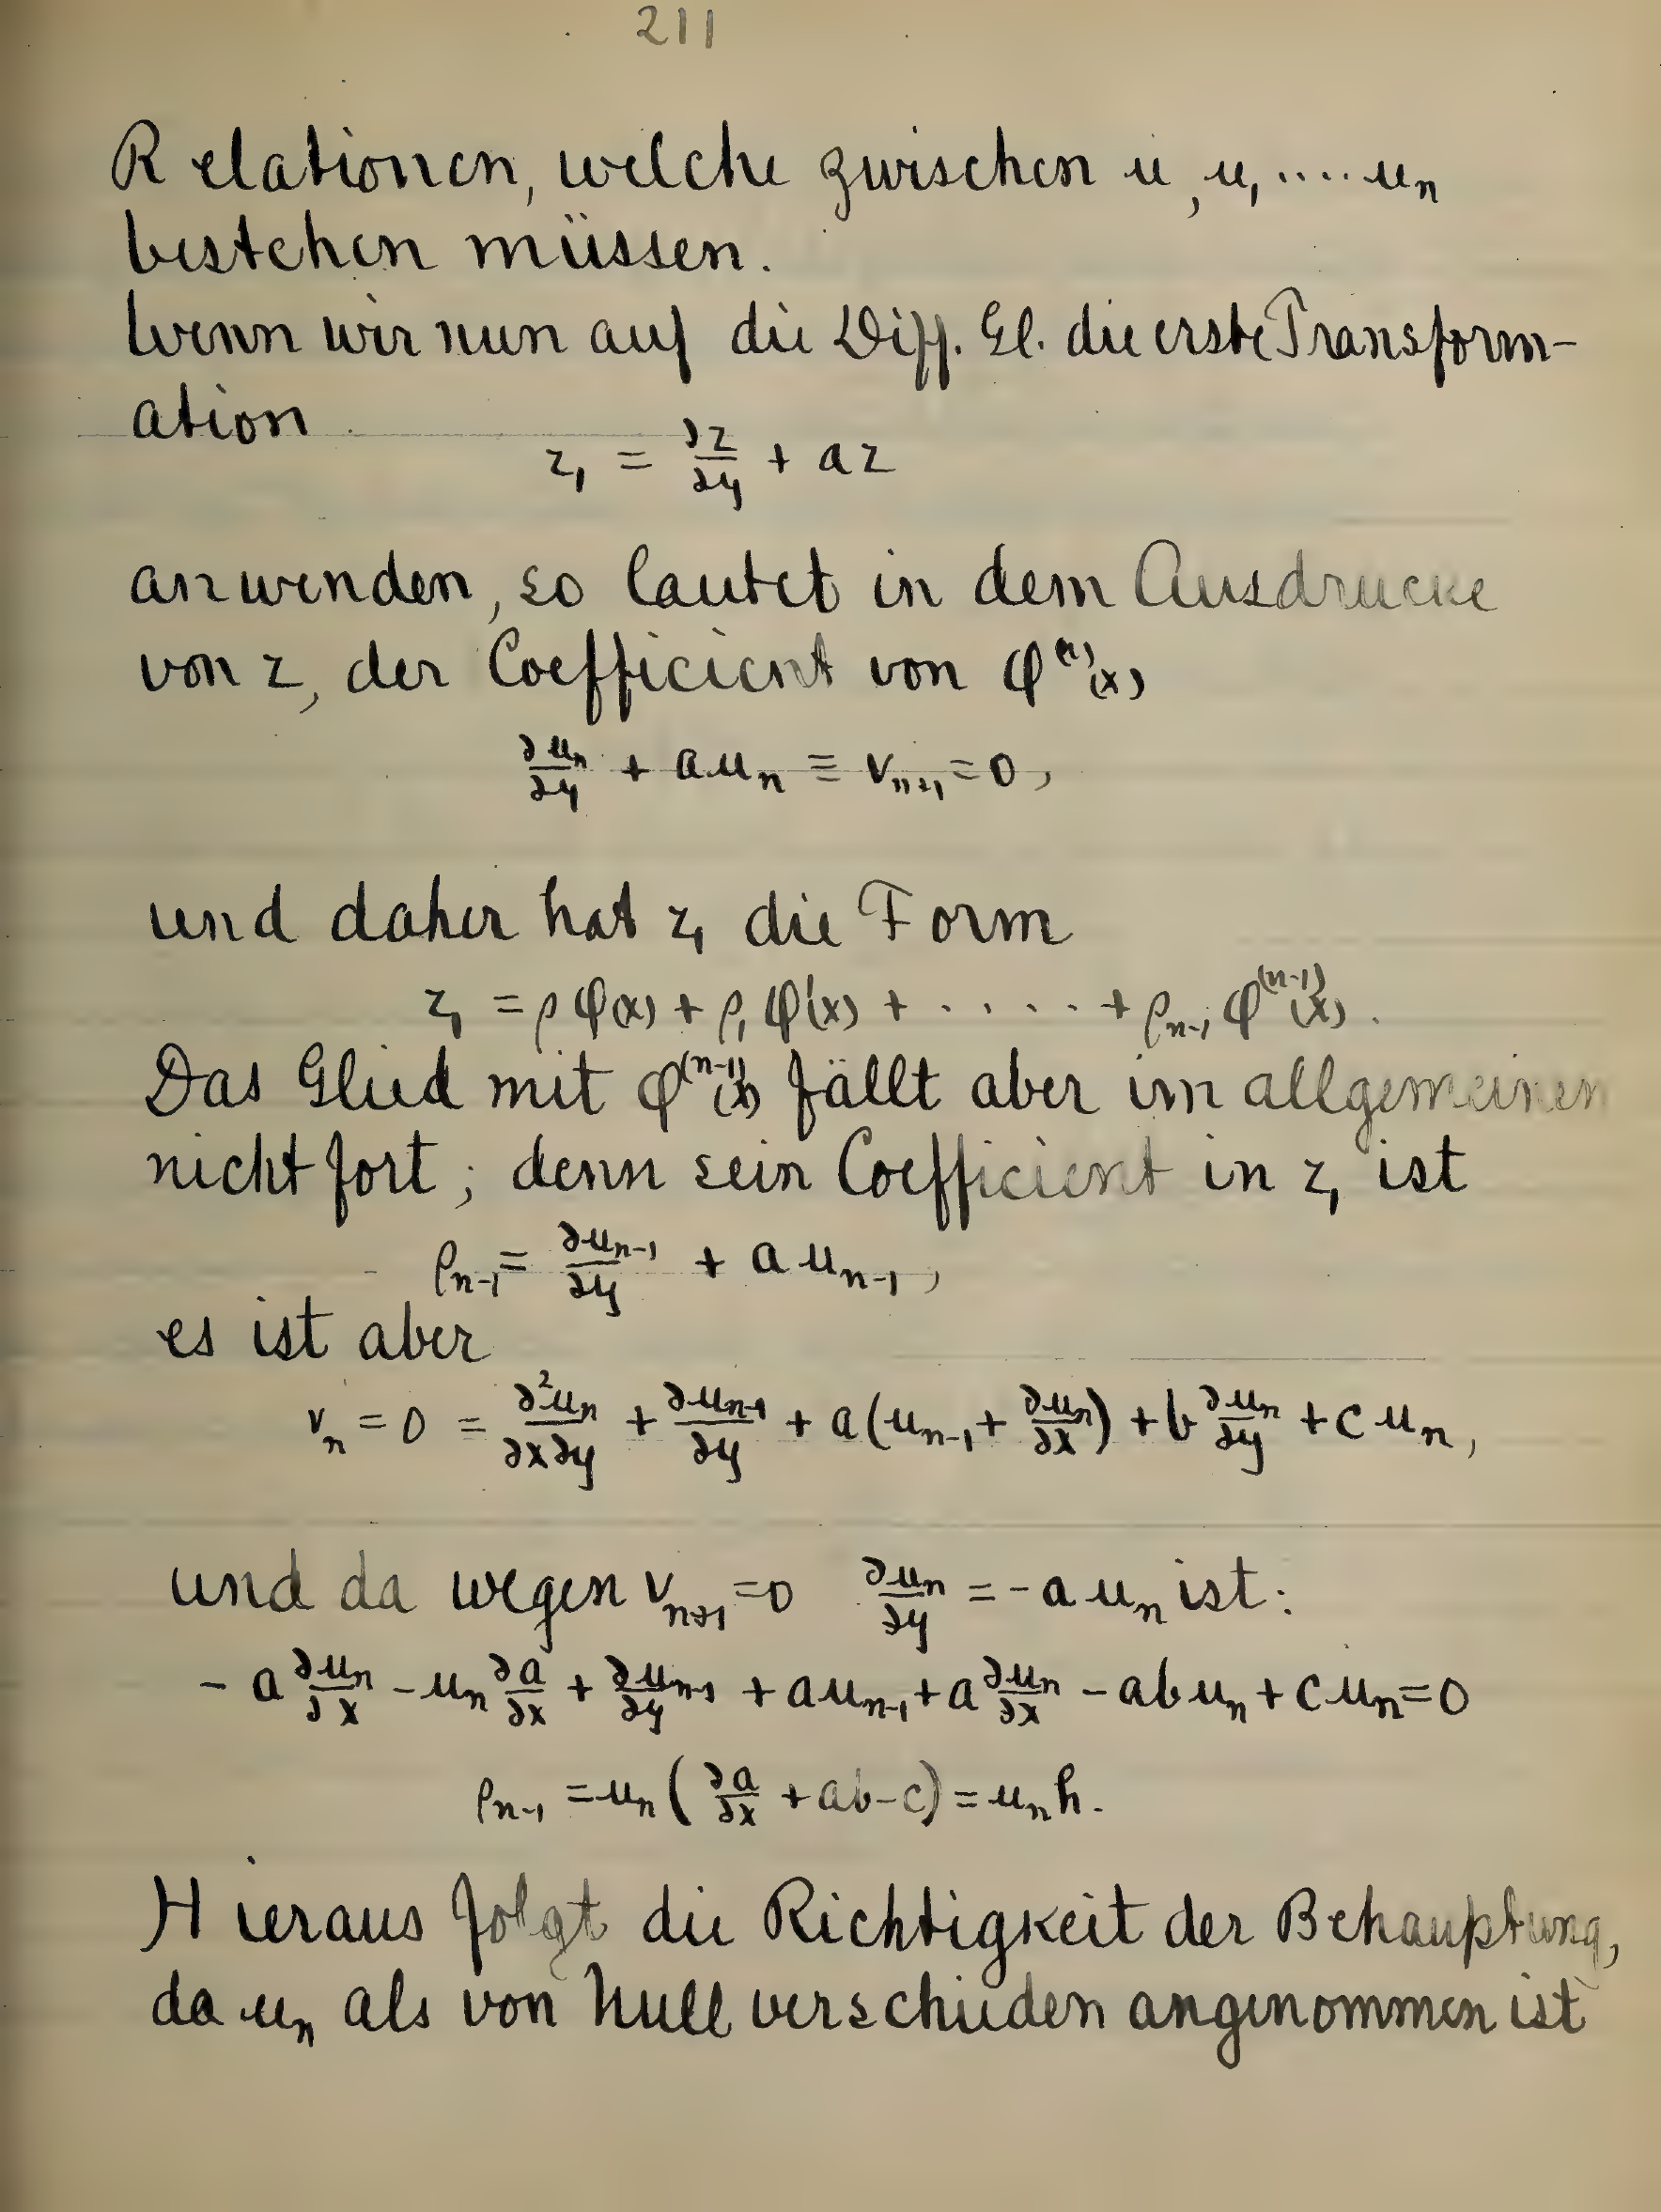 211
Relationen, welche zwischen u, u₁ .... uₙ
bestehen müssen.
Wenn wir nun auf die Diff. Gl. die erste Transform-
ation
z₁ = ∂z/∂y + az
anwenden, so lautet in dem Ausdrucke
von z₁ der Coefficient von φ⁽ⁿ⁾(x)
∂uₙ/∂y + auₙ ≡ vₙ₊₁ = 0,
und daher hat z₁ die Form
z₁ = ρ φ(x) + ρ₁ φ'(x) + ..... + ρₙ₋₁ φ⁽ⁿ⁻¹⁾(x).
Das Glied mit φ⁽ⁿ⁻¹⁾(x) fällt aber im allgemeinen
nicht fort; denn sein Coefficient in z₁ ist
ρₙ₋₁ = ∂uₙ₋₁/∂y + a uₙ₋₁,
es ist aber
vₙ = 0 = ∂²uₙ/∂x∂y + ∂uₙ₋₁/∂y + a(uₙ₋₁ + ∂uₙ/∂x) + b ∂uₙ/∂y + c uₙ,
und da wegen vₙ₊₁ = 0 ∂uₙ/∂y = -a uₙ ist:
- a ∂uₙ/∂x - uₙ ∂a/∂x + ∂uₙ₋₁/∂y + auₙ₋₁ + a ∂uₙ/∂x - abuₙ + cuₙ = 0
ρₙ₋₁ = uₙ (∂a/∂x + ab - c) = uₙh.
Hieraus folgt die Richtigkeit der Behauptung,
da uₙ als von Null verschieden angenommen ist